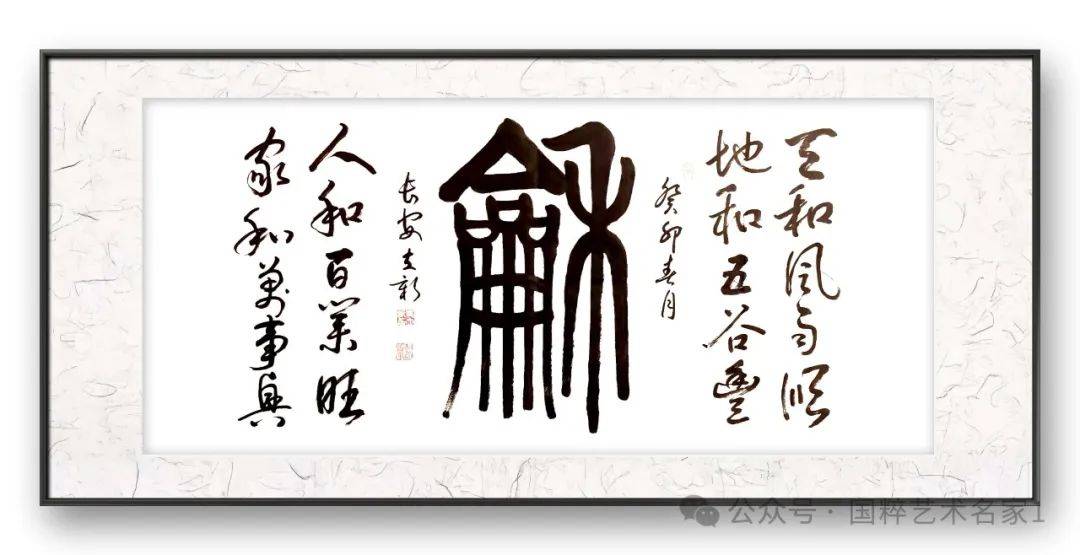 天和风雨顺
地和五谷豐
癸卯春月
龢
长安立新
人和百業旺
家和萬事興
公众号 · 国粹艺术名家1